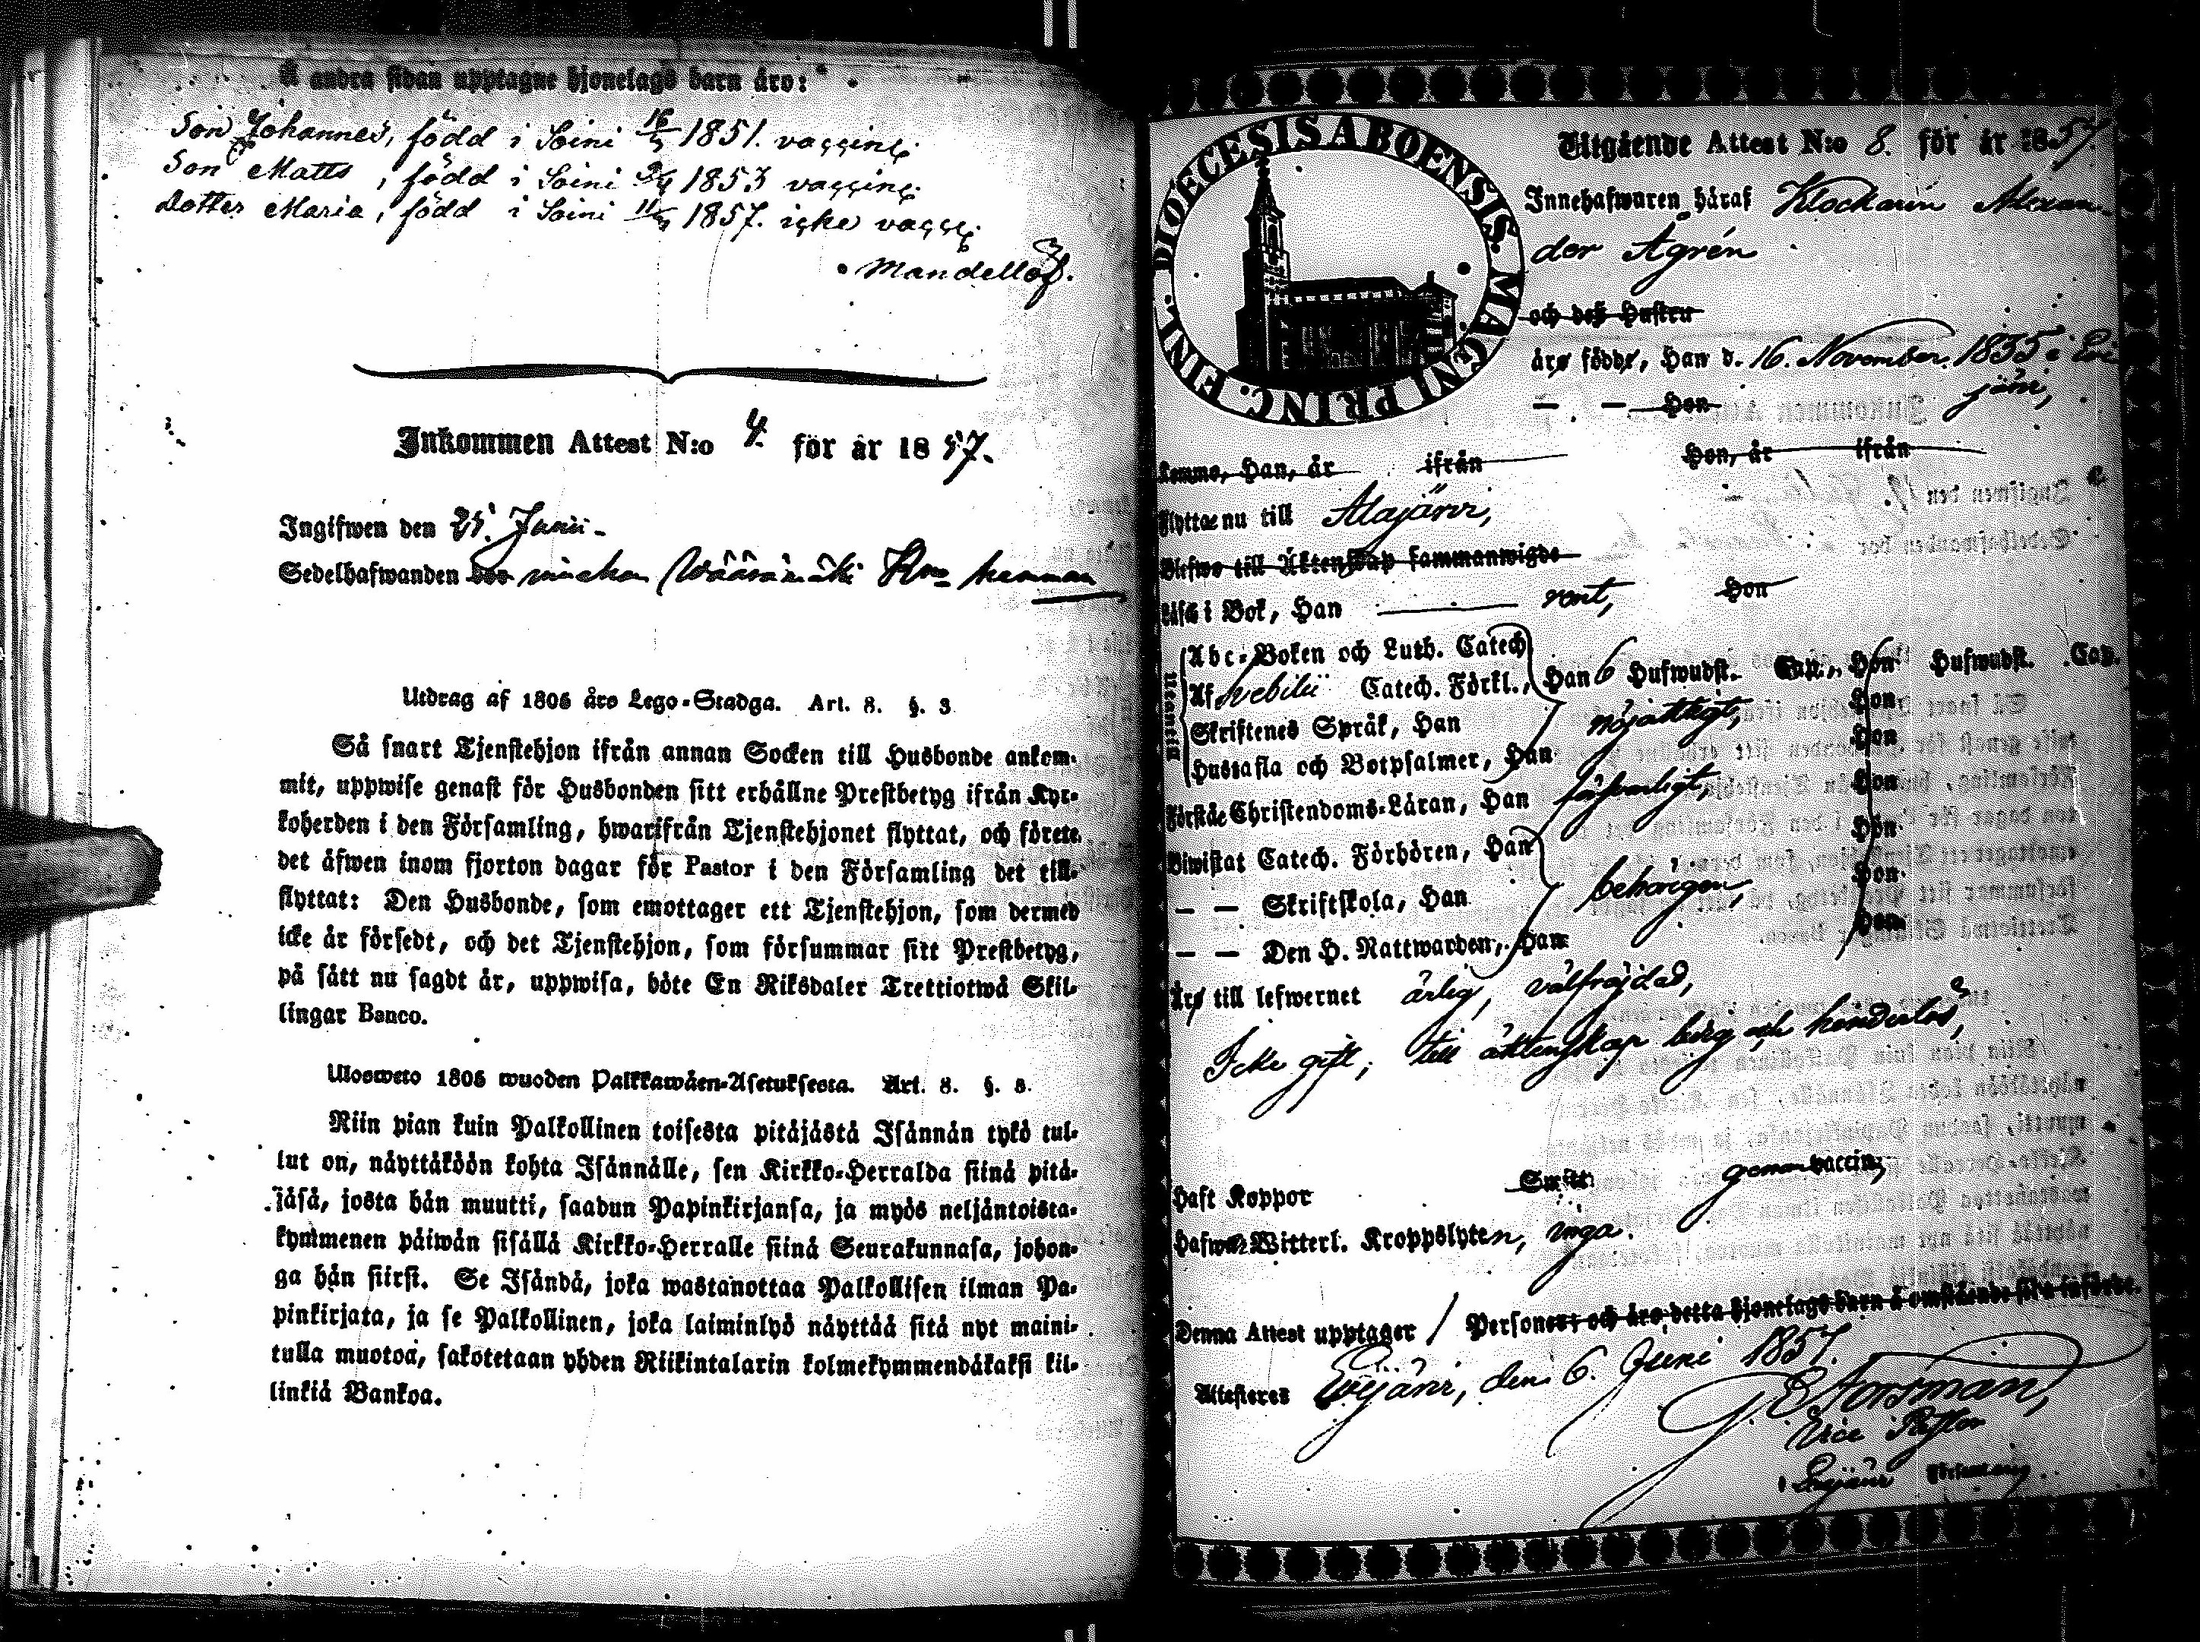 Å andra sidan upptagne hjonelags barn äro:
Son Johannes, född i Soini 1851. vaccin:
Son Matts, född i Soini 1853 vaccin:
Dotter Maria, född i Soini 1857. icke vacc:
Mandellöf.
Inkommen Attest N:o 4. för år 1857.
Ingifwen den 25. Juni.
Sedelhafwanden bor
Utdrag af 1805 års Lego-Stadga. Art. 8. §. 3
Så snart Tjenstehjon ifrån annan Socken till Husbonde ankom-
mit, uppwise genast för Husbonden sitt erhållne Prestbetyg ifrån Kyr-
koherden i den Församling, hwarifrån Tjenstehjonet flyttat, och förete
det äfwen inom fjorton dagar för Pastor i den Församling det till-
flyttat: Den Husbonde, som emottager ett Tjenstehjon, som dermed
icke är försedt, och det Tjenstehjon, som försummar sitt Prestbetyg,
på sätt nu sagdt är, uppwisa, böte En Riksdaler Trettiotwå Skil-
lingar Banco.
Ulosweto 1805 wuoden Palkkawäen-Asetuksesta. Art. 8. §. 3.
Niin pian kuin Palkollinen toisesta pitäjästä Isännän tykö tul-
lut on, näyttäköön kohta Isännälle, sen Kirkko-Herralda siinä pitä-
jäsä, josta hän muutti, saadun Papinkirjansa, ja myös neljäntoista-
kymmenen päiwän sisällä Kirkko-Herralle siinä Seurakunnasa, johon-
ga hän siirsi. Se Isändä, joka wastanottaa Palkollisen ilman Pa-
pinkirjata, ja se Palkollinen, joka laiminlyö näyttää sitä nyt maini-
tulla muotoa, sakotetaan yhden Riikintalarin kolmekymmendäkaksi kil-
linkiä Bankoa.
DIOECESIS ABOENSIS. MAGNI PRINC. FINL.
Utgående Attest N:o 8. för år 1857.
Innehafwaren häraf Klockaren Alexan-
der Ågrén
och deß Hustru
äro födde, Han d. 16. November 1835 i Evi
järvi,
— — Hon
Kommo, Han, år ifrån Hon, år ifrån
Flytta nu till Alajärvi,
Blefwo till Äktenskap sammanwigde
Läsa i Bok, Han — rent, Hon
Utantill
Abc-Boken och Luth. Catech
Af Svebilii Catech. Förkl., Han 6 Hufwudst. Cap., Hon Hufwudst. Cap.
Skriftenes Språk, Han nöjaktigt, Hon
Hustafla och Botpsalmer, Han Hon
Förstå Christendoms-Läran, Han försvarligt, Hon
Biwistat Catech. Förhören, Han Hon
— — Skriftskola, Han behörigen, Hon
— — Den H. Nattwarden, Han Hon
Äro till lefwernet ärlig, välfrejdad,
Icke gift; till äktenskap ledig och hinderlös,
Haft Koppor genom vaccin:
Hafwa Witterl. Kroppslyten, inga.
Denna Attest upptager 1 Personer och äro detta hjonelags barn å omstående sida införde.
Attesteras Evijärvi, den 6. Juni 1857.
Forsman,
Vice Pastor
i Evijärvi Församling